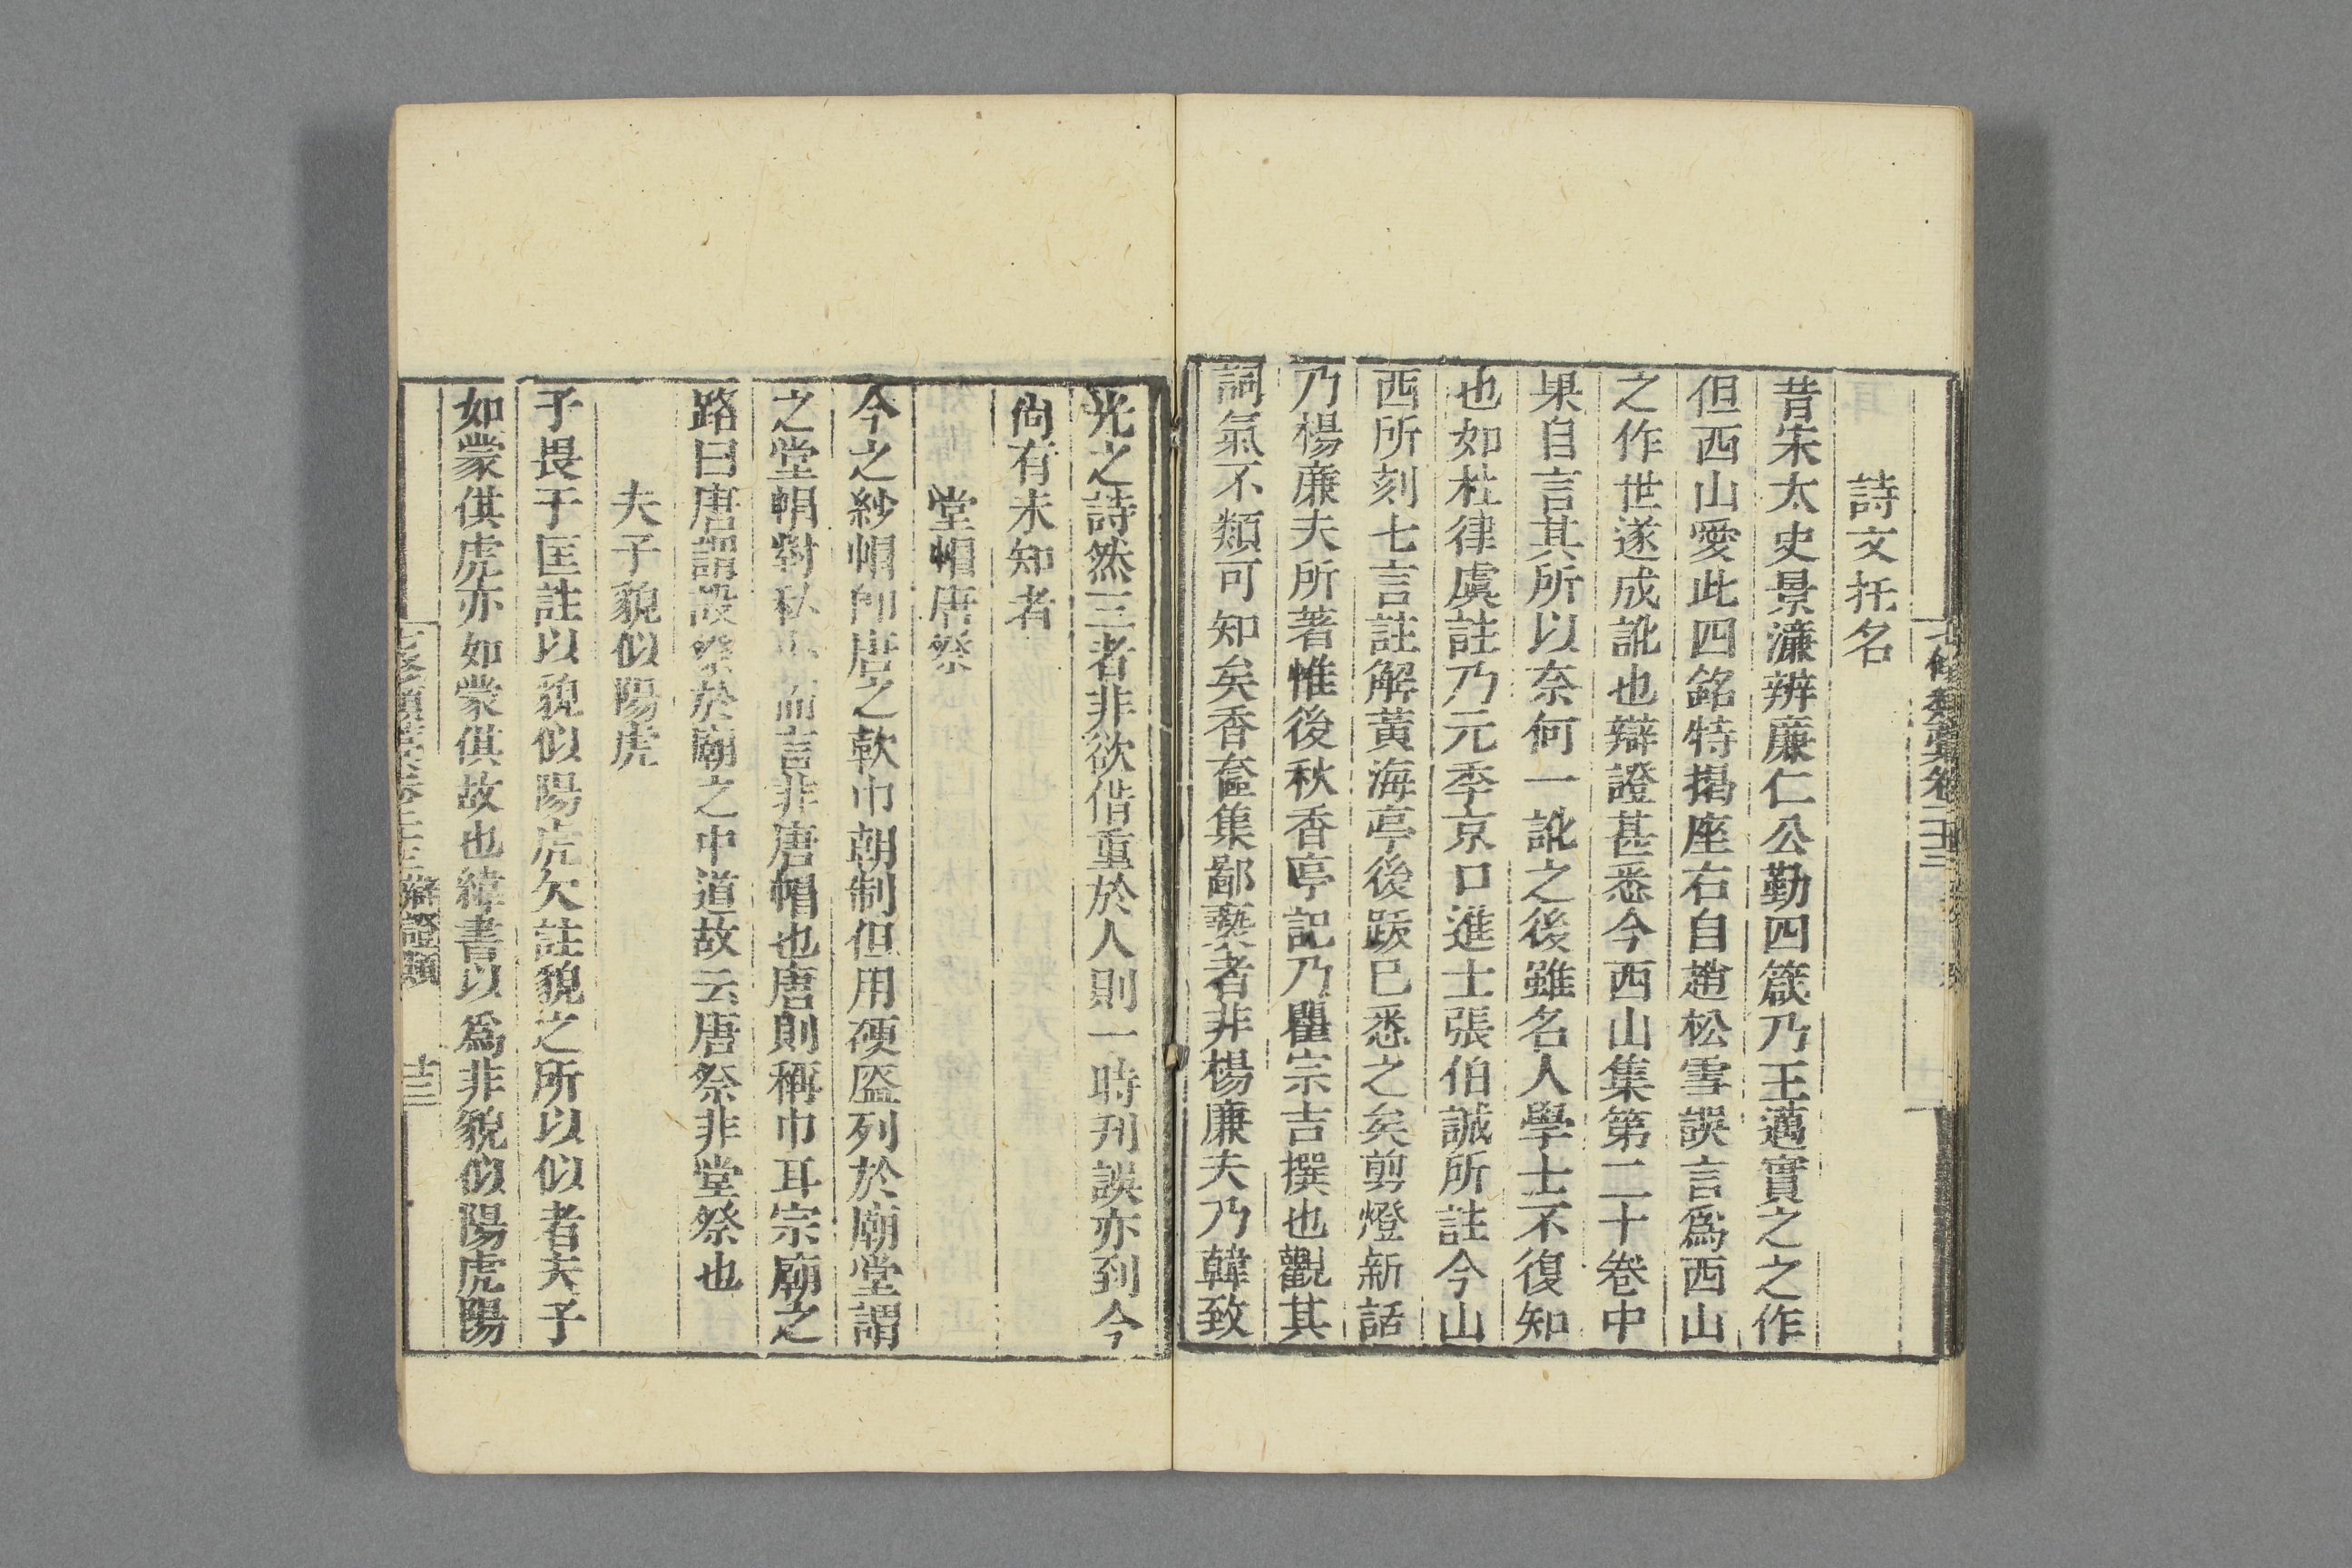 七修類藁卷二十三
詩文托名
昔宋太史景濂辨廉仁公勤四箴乃王邁實之之作
但西山愛此四銘特揭座右自趙松雪誤言爲西山
之作世遂成訛也辯證甚悉今西山集第二十卷中
果自言其所以奈何一訛之後雖名人學士不復知
也如杜律虞註乃元季京口進士張伯誠所註今山
西所刻七言註解黃海亭後䟦巳悉之矣剪燈新話
乃楊廉夫所著惟後秋香亭記乃瞿宗吉撰也觀其
詞氣不類可知矣香奩集鄙褻者非楊廉夫乃韓致
光之詩然三者非欲借重於人則一時刋誤亦到今
尙有未知者
堂帽唐祭
今之紗帽卽唐之軟巾朝制但用硬盔列於廟堂謂
之堂帽對私而言非唐帽也唐則稱巾耳宗廟之
路曰唐謂設祭於廟之中道故云唐祭非堂祭也
夫子貌似陽虎
子畏于匡註以貌似陽虎欠註貌之所以似者夫子
如蒙倛虎亦如蒙倛故也緯書以爲非貌似陽虎陽
七修類藁卷二十三 辯證類 十三